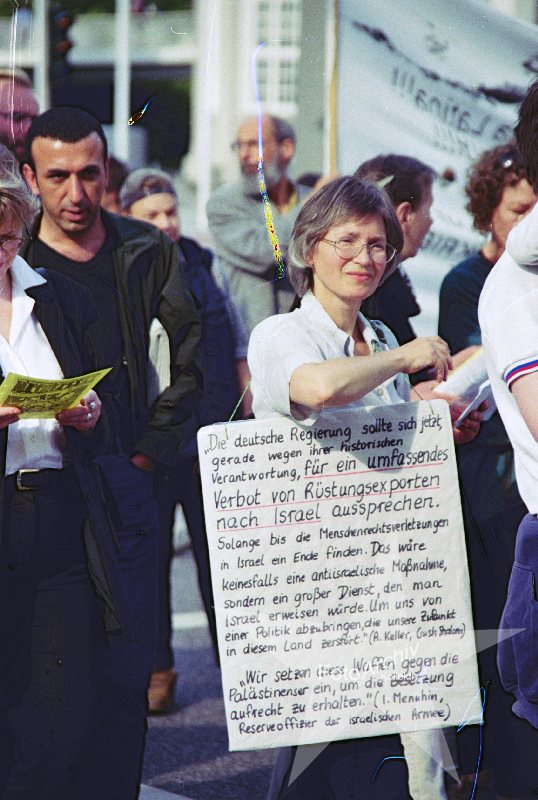 „Die deutsche Regierung sollte sich jetzt,
gerade wegen ihrer historischen
Verantwortung, für ein umfassendes
Verbot von Rüstungsexporten
nach Israel aussprechen.
Solange bis die Menschenrechtsverletzungen
in Israel ein Ende finden. Das wäre
keinesfalls eine antiisraelische Maßnahme,
sondern ein großer Dienst, den man
Israel erweisen würde. Um uns von
einer Politik abzubringen, die unsere Zukunft
in diesem Land zerstört." (A. Keller, Gush Shalom)
„Wir setzen diese Waffen gegen die
Palästinenser ein, um die Besetzung
aufrecht zu erhalten." (I. Menuhin,
Reserveoffizier der israelischen Armee)